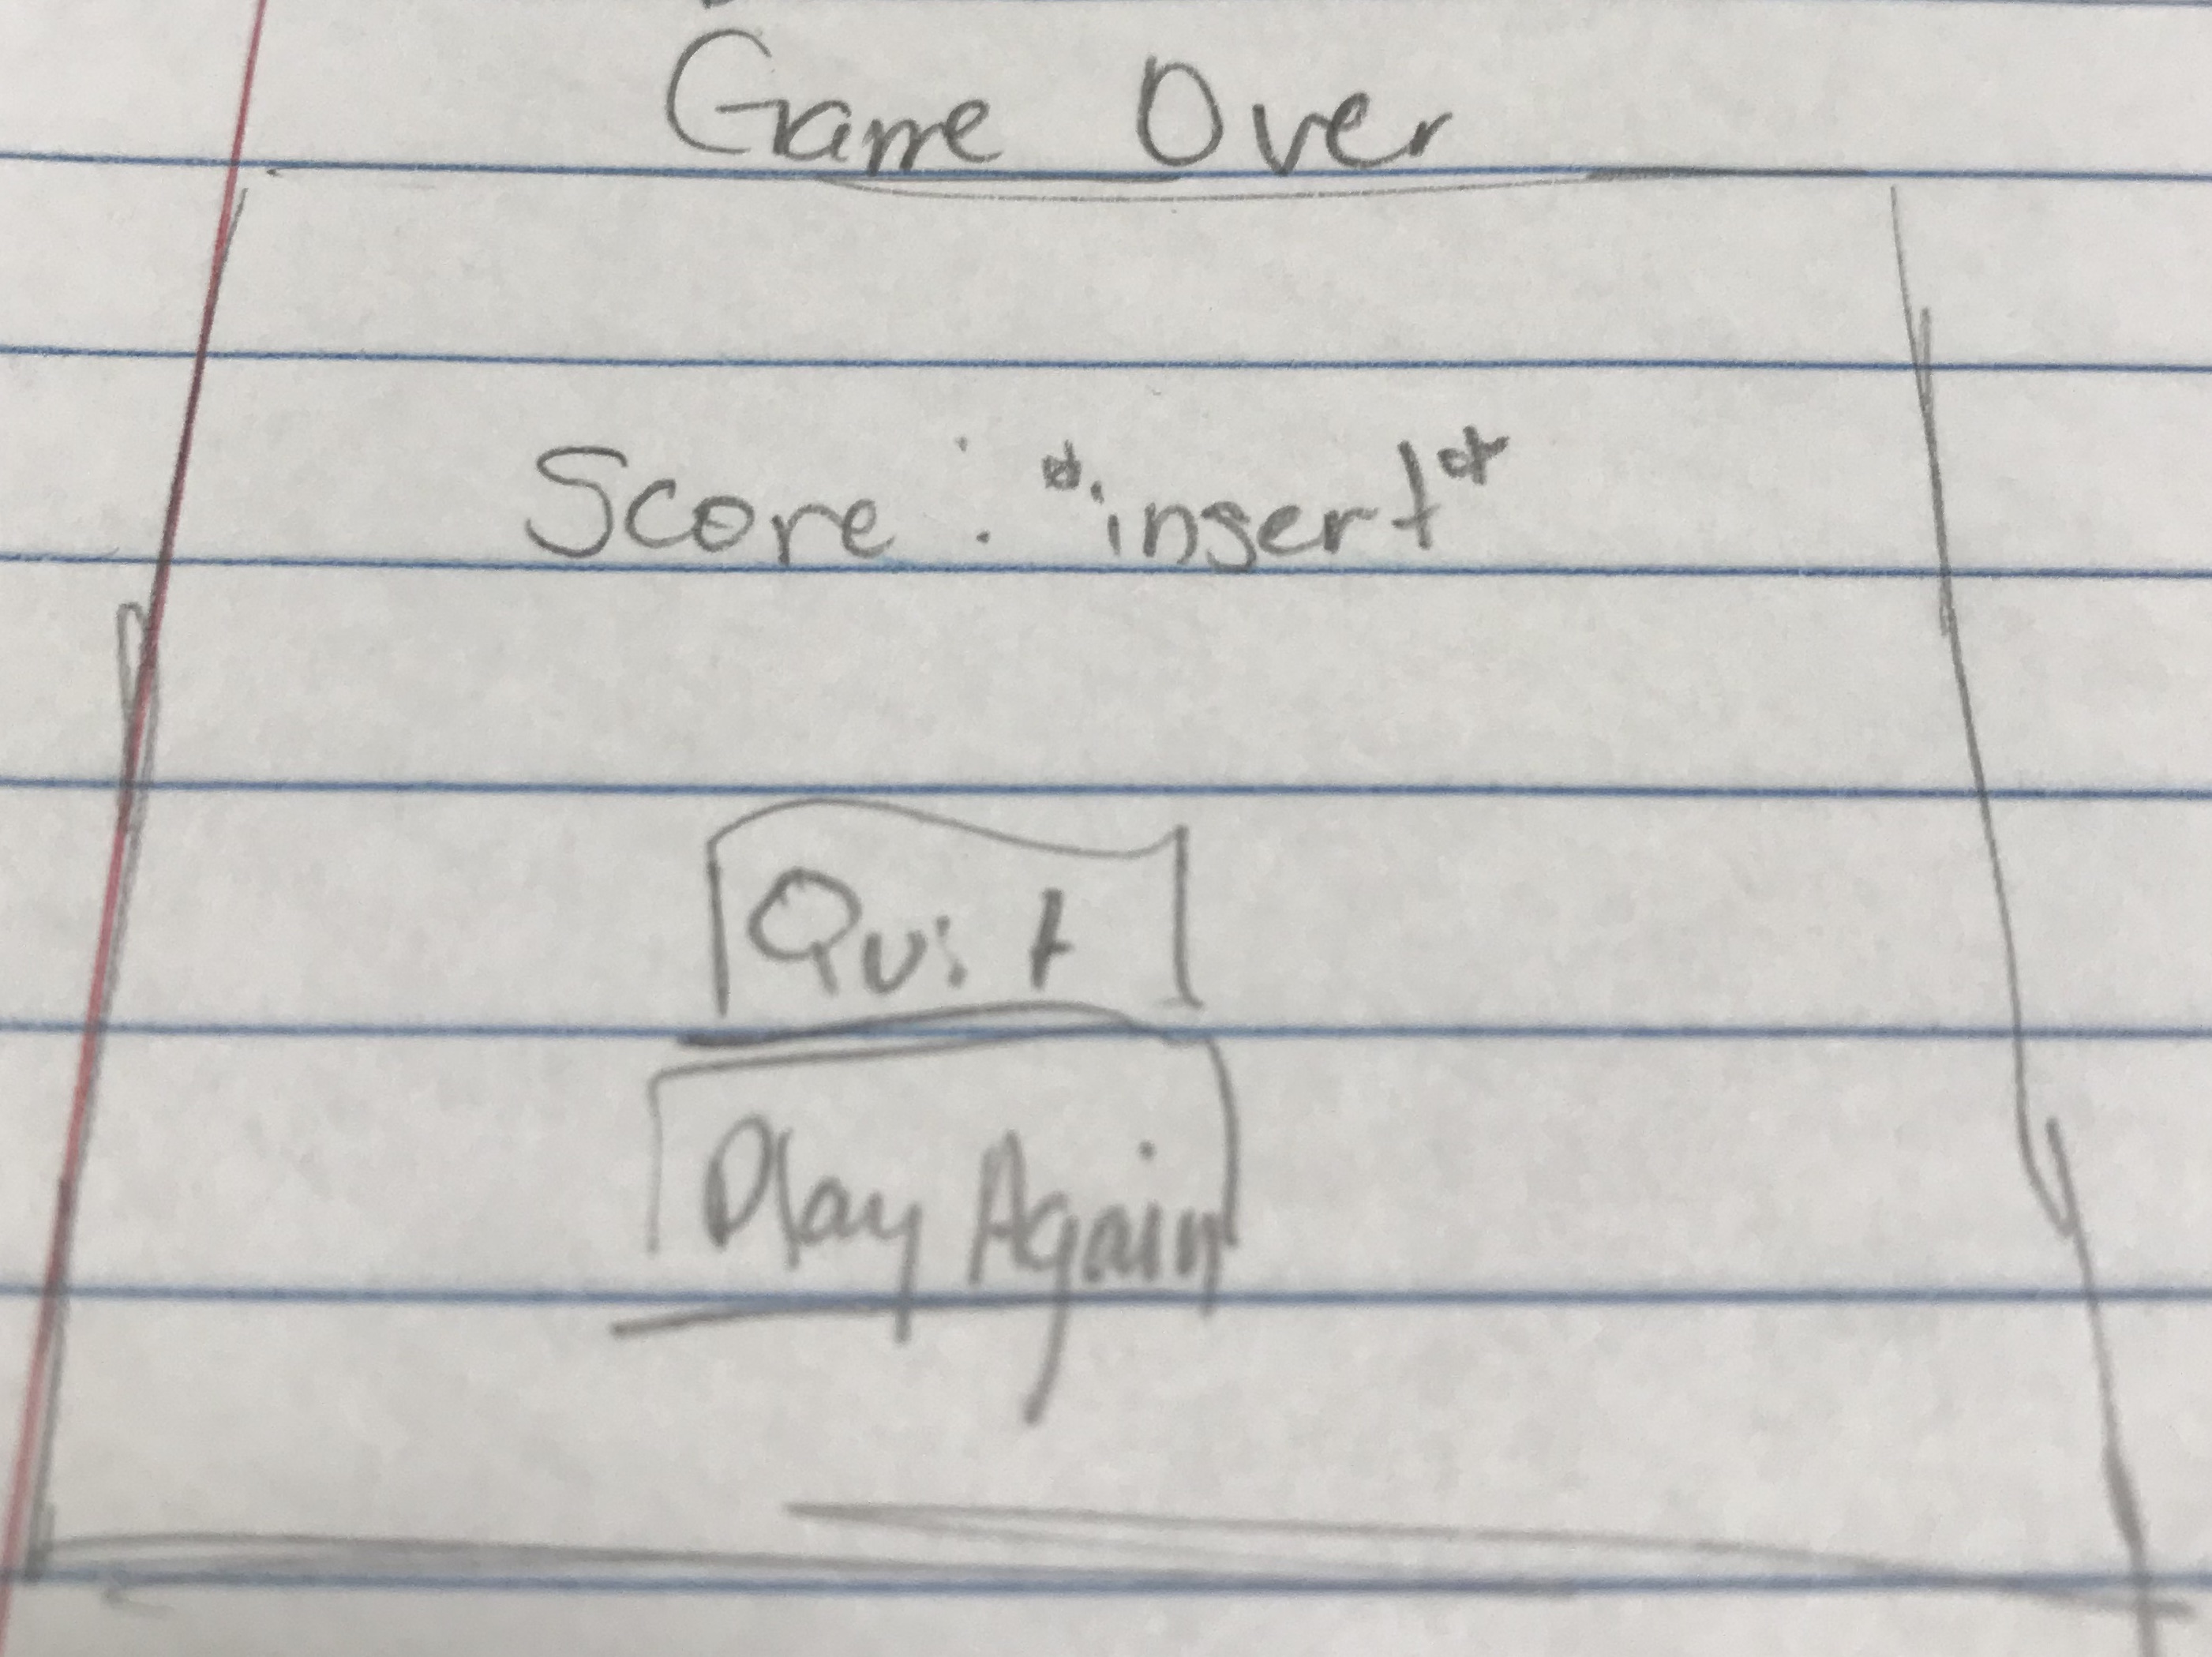 Game Over
Score: *insert*
Quit
Play Again